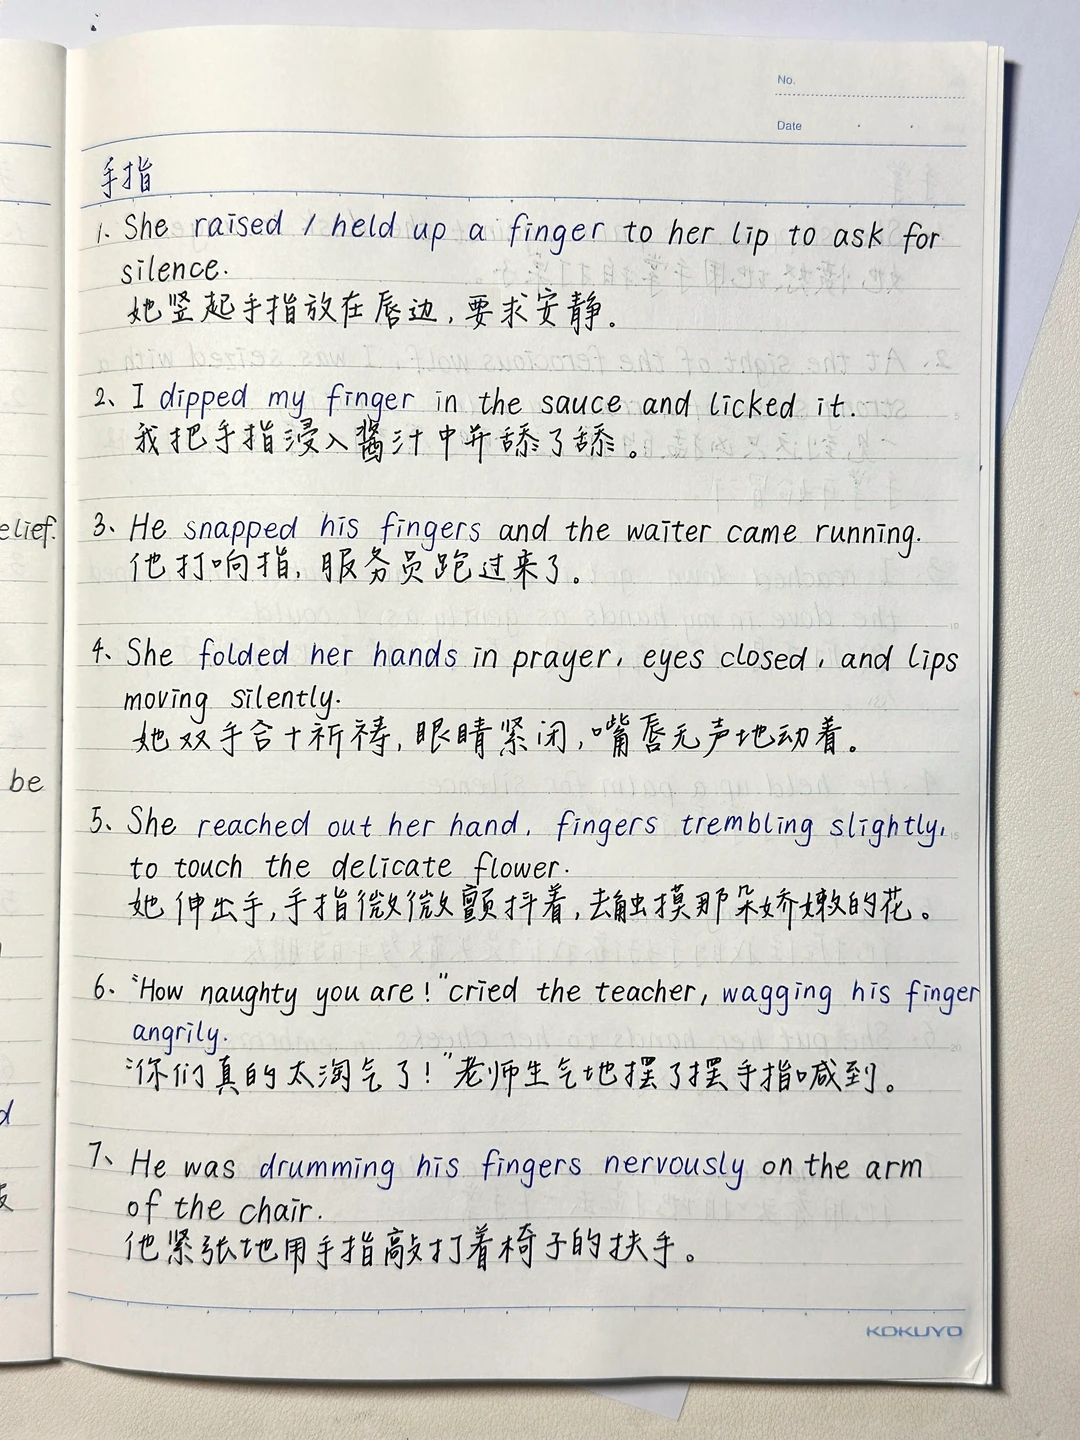 No.
Date
手指
1. She raised / held up a finger to her lip to ask for
silence.
她竖起手指放在唇边,要求安静。
2、I dipped my finger in the sauce and licked it.
我把手指浸入酱汁中并舔了舔。
3、He snapped his fingers and the waiter came running.
他打响指,服务员跑过来了。
4、She folded her hands in prayer, eyes closed, and lips
moving silently.
她双手合十祈祷,眼睛紧闭,嘴唇无声地动着。
5、She reached out her hand, fingers trembling slightly,
to touch the delicate flower.
她伸出手,手指微微颤抖着,去触摸那朵娇嫩的花。
6、"How naughty you are!" cried the teacher, wagging his finger
angrily.
"你们真的太淘气了!"老师生气地摆了摆手指喊到。
7、He was drumming his fingers nervously on the arm
of the chair.
他紧张地用手指敲打着椅子的扶手。
KOKUYO
elief.
be
d